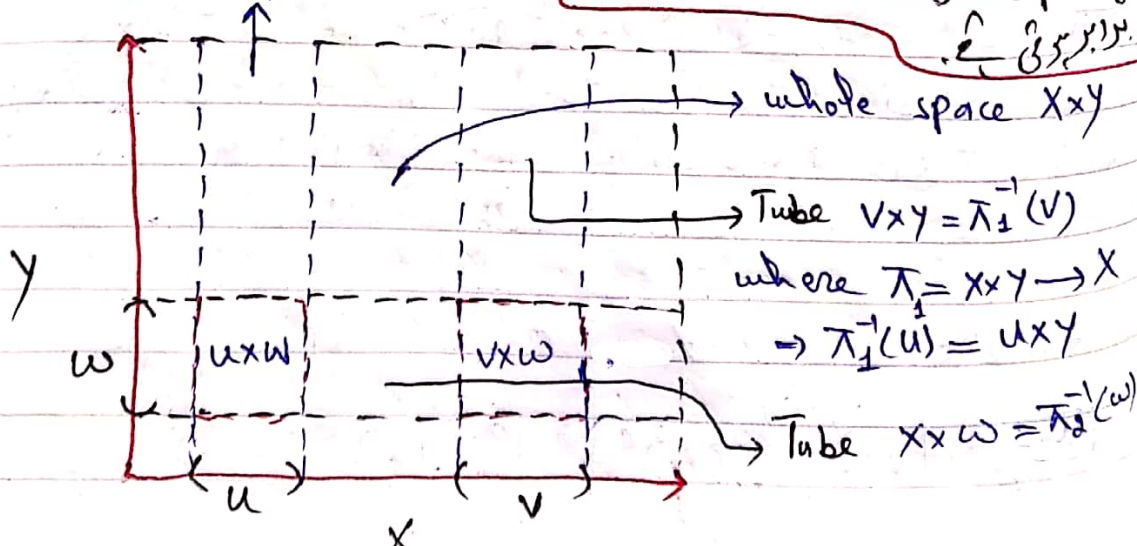 برابر ہوتی ہے۔
whole space X×Y
Tube V×Y = π₁⁻¹(V)
where π₁ = X×Y → X
⇒ π₁⁻¹(U) = U×Y
Tube X×W = π₂⁻¹(W)
Y
W
U×W
V×W
U
X
V